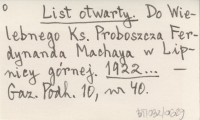 List otwarty. Do Wie-
lebnego Ks. Proboszcza Fer-
dynanda Machaya w Lip-
nicy górnej. 1922... —
Gaz. Podh. 10, nr 40.